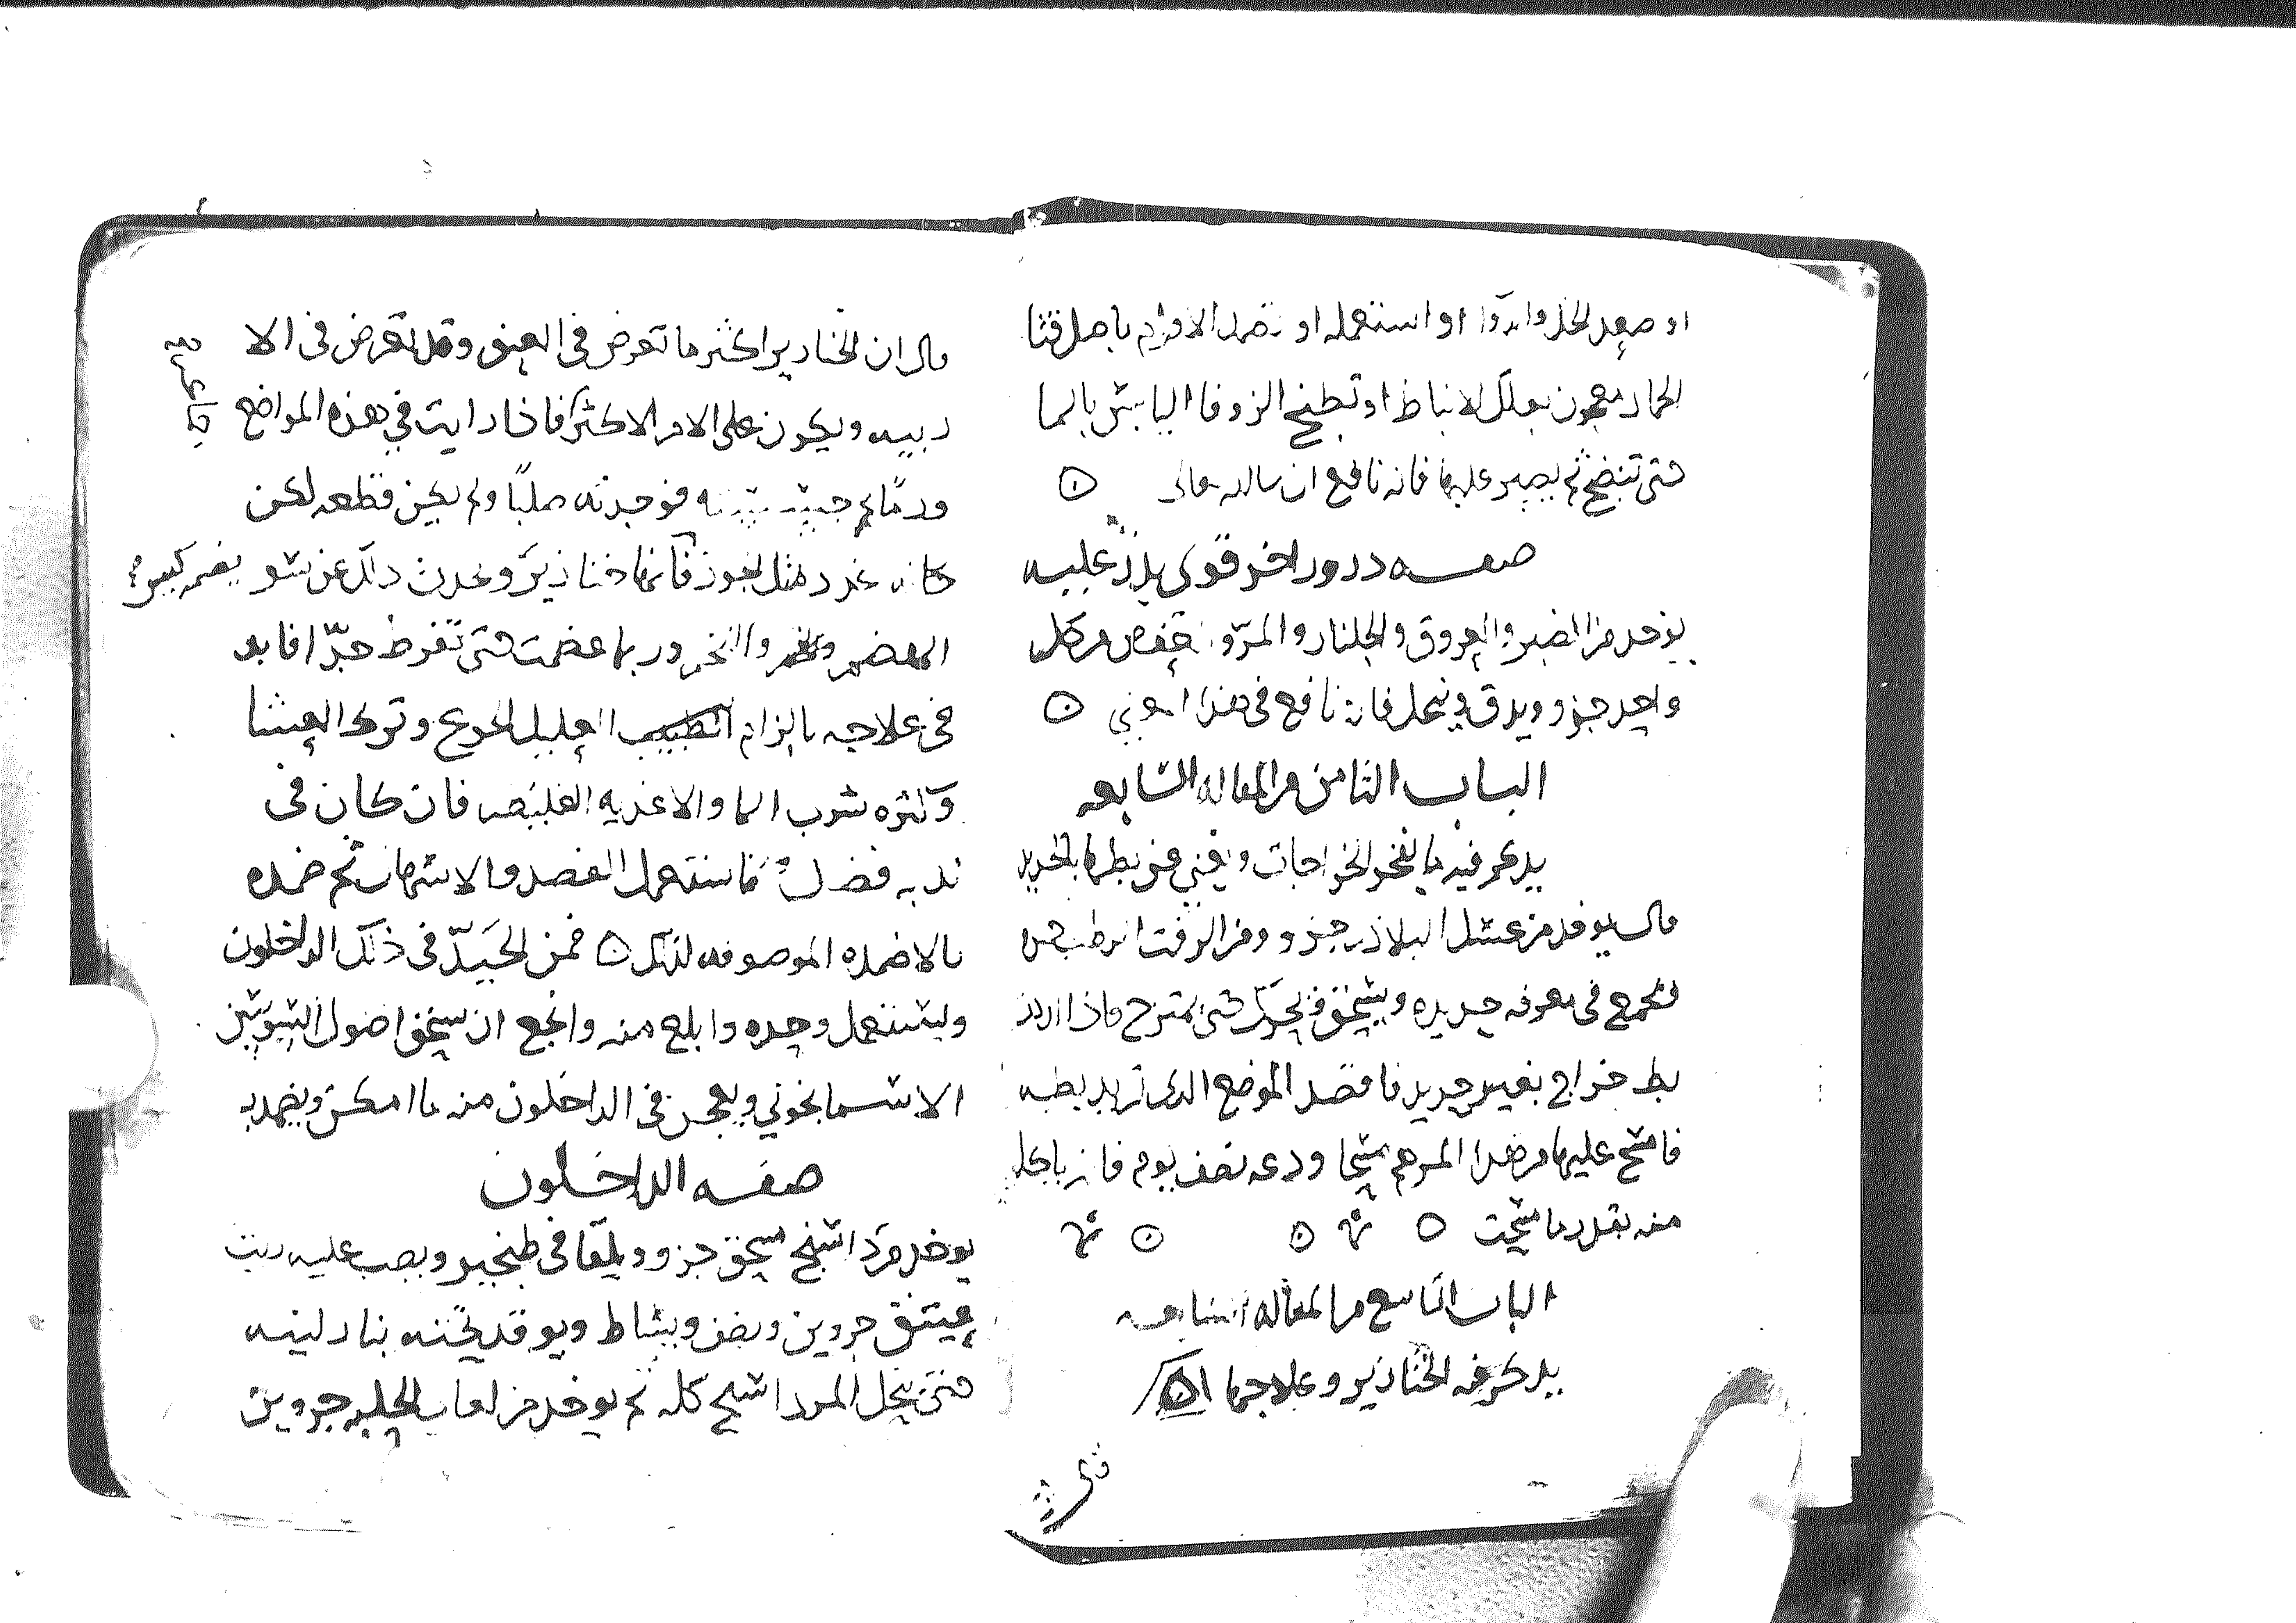 او استعمله او تضمد الاورام باصل قثا
الحمار معجون بعلك الانباط او تطبخ الزوفا اليابس بالما
حتى تنضج ثم يصير عليها فانه نافع ان سا الله تعالى
صفه درور اخر قوى يذر عليه
يوخد من الصبر والعروق والجلنار والمر وعفص من كل
واحد جزو ويدق وينخل فانه نافع في هذا
الباب الثامن من المقاله السابعه
يدكر فيه ما يفجر الخراجات ويغني عن بطها بالحديد
قال يوخد من عسل البلاذر جزو ومن الزفت الرطب جزو
فتجمع في مغرفه حديد ويسخن ويحرك حتى يمتزج فاذا اردت
بط خراج بغير حديد فاقصد الموضع الدى تريد بطه
فامسح عليها من هذا المرهم مسحا ودعه نصف يوم فانه ياكل
منه بقدر ما مسحت
الباب التاسع من المقاله السابعه
يدكر فيه الخنازير وعلاجها
قال
قال ان الخنازير اكثر ما تعرض في العنق وقد تعرض في الا
ربيه ويكون على الامر الاكثر فاذا رايت في هذه المواضع
ورما ثم جسسته فوجدته صلبا ولم يكن قطعه لكن
كانه غدد مثل الجوز فانها خنازير ويحدث دلك عن سو
الهضم والتخم وربما عظمت حتى تفرط جدا فابدا
في علاجه بالزام العليل الجوع وترك العشا
وكثره شرب الما والاغذيه الغليظه فان كان في
بدنه فضل فاستعمل الفصد والاسهال ثم ضمده
بالاضمده الموصوفه لذلك فمن الجيد في ذلك الداخلون
وليستعمل وحده وابلغ منه وانجع ان يسحق اصول السوسن
الاسمانجوني ويعجن في الداخلون منه ما امكن ويضمد به
صفه الداخلون
يوخد مرداسنج مسحق جزو ويلقا في طنجير ويصب عليه زيت
عتيق جزوين ونصف ويساط ويوقد تحته بنار لينه
حتى ينحل المرداسنج كله ثم يوخد من لعاب الحلبه جزوين